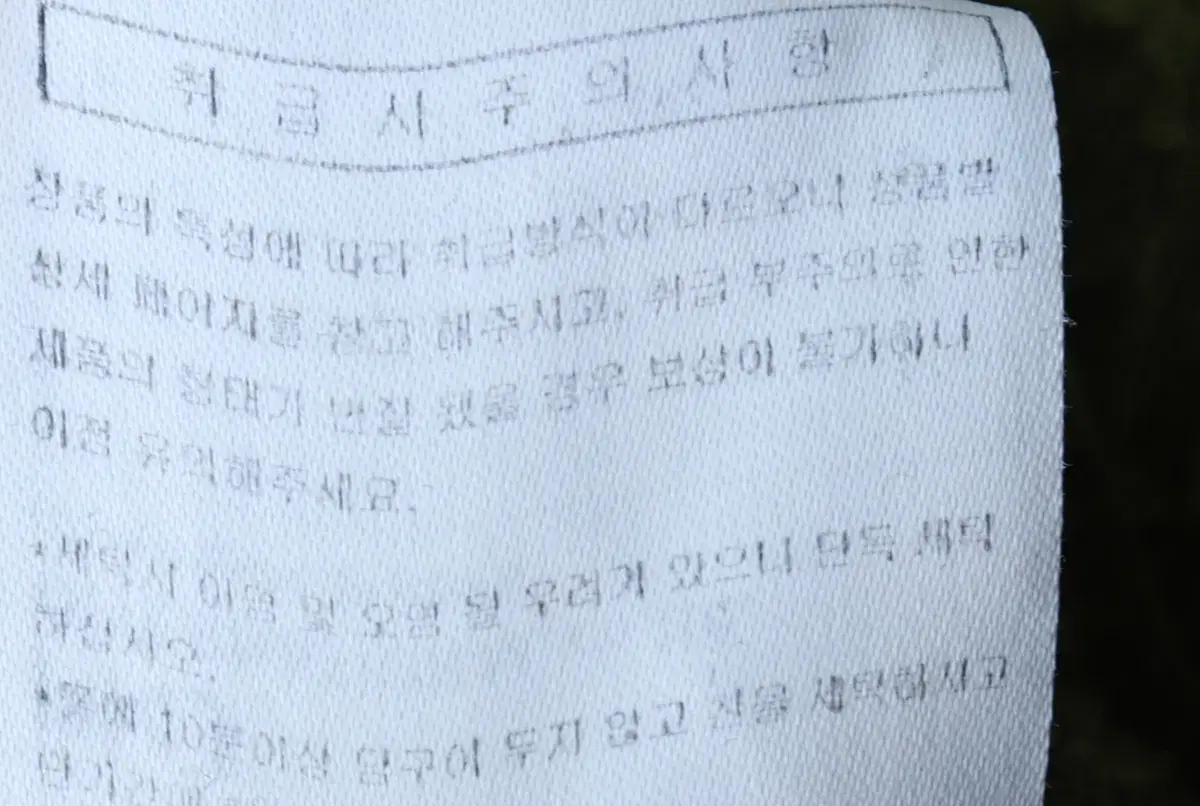 취급시주의사항
상품의 특성에 따라 취급방식이 다르오니 상품별
상세 페이지를 참고 해주시고, 취급 부주의로 인한
제품의 형태가 변질 됐을 경우 보상이 불가하니
이점 유의해주세요.
*세탁시 이염 및 오염 될 우려가 있으니 단독 세탁
하십시오.
*물에 10분이상 담구어 두지 않고 찬물 세탁하시고